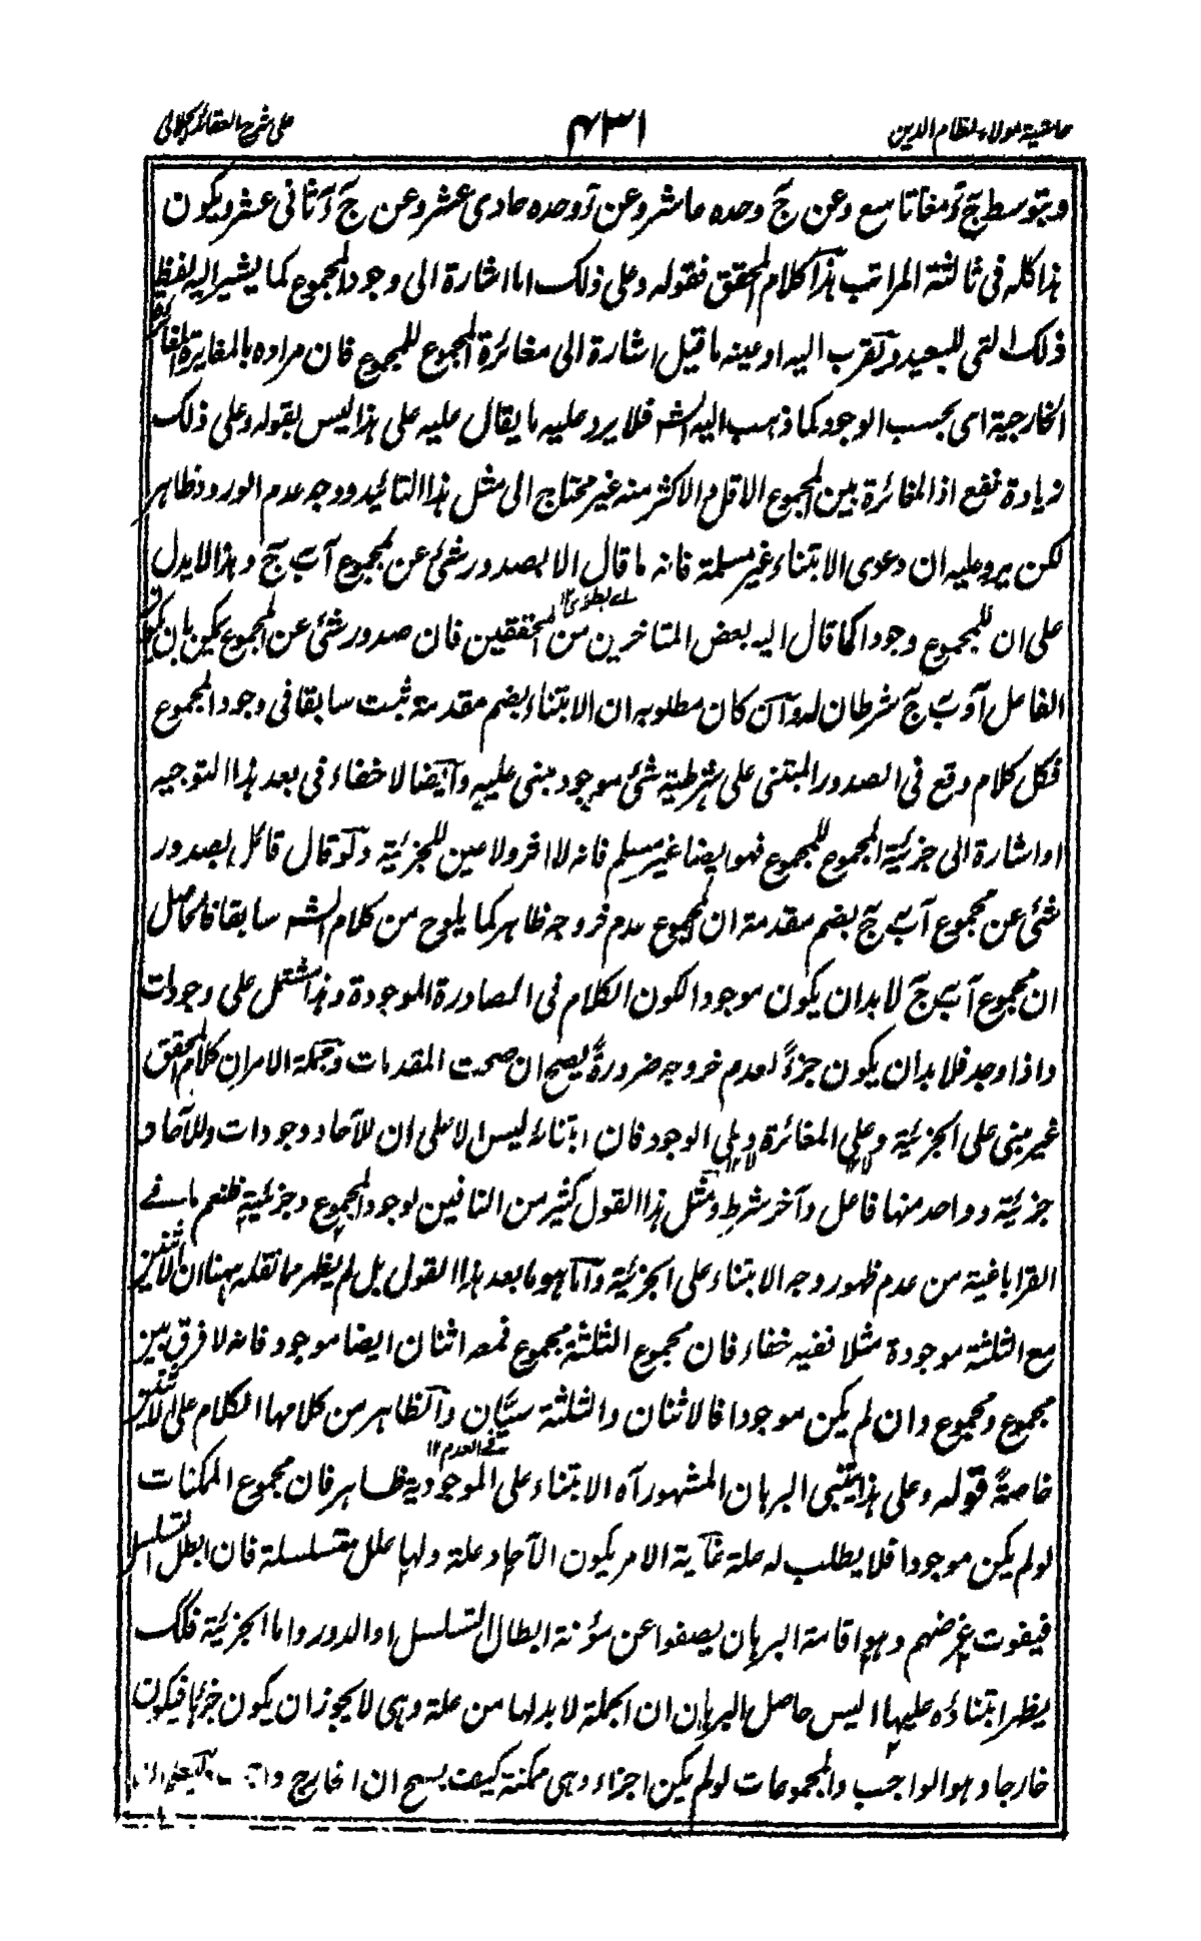 حاشیة مولانا نظام الدین
۴۳۱
علی شرح العقائد الجلالی
وبتوسط ج د معا تاسع وعن ج وحده عاشر وعن د وحده حادی عشر وعن ج د ثانی عشر ویکون
هذا کله فی ثالثة المراتب هذا کلام المحقق فقوله وعلی ذلک اما اشارة الی وجود المجموع کما یشیر الیه لفظ
ذلک التی للبعید وتقرب الیه او عینه ما قیل اشارة الی مغائرة المجموع للمجموع فان مراده بالمغایرة المغائرة
الخارجیة ای بحسب الوجود کما ذهب الیه الشـ فلا یرد علیه ما یقال علیه علی هذا لیس بقوله وعلی ذلک
زیادة نفع اذ المغائرة بین المجموع الاقل والاکثر منه غیر محتاج الی مثل هذا التائید ووجه عدم الورود ظاهر
لکن یرد علیه ان دعوی الابتناء غیر مسلمة فانه ما قال الا بصدور شئ عن مجموع آ ب ج وهذا لا یدل
علی ان للمجموع وجودا کما قال الیه بعض المتاخرین من المحققین فان صدور شئ عن المجموع یمکن بان یکون
الفاعل آ و ب ج شرطان له وآن کان مطلوبه ان الابتناء بضم مقدمة ثبت سابقا فی وجود المجموع
فکل کلام وقع فی الصدور المبتنی علی شرطیة شئ موجود مبنی علیه وآیضا لا خفاء فی بعد هذا التوجیه
او اشارة الی جزئیة المجموع للمجموع فهو ایضا غیر مسلم فانه لا اثر ولا عین للجزئیة ولو قال قائل بصدور
شئ عن مجموع آ ب ج بضم مقدمة ان المجموع عدم خروجه ظاهر کما یلوح من کلام الشـ سابقا فالحاصل
ان مجموع آ ب ج لا بد ان یکون موجودا لکون الکلام فی الصادرة الموجودة وهذا مشتمل علی وجودات
واذا وجد فلا بد ان یکون جزءً لعدم خروجه ضرورةً یصح ان صحت المقدمات وبجملة الامران کلام المحقق
غیر مبنی علی الجزئیة وعلی المغائرة وعلی الوجود فان ابتناءه لیس الا علی ان للآحاد وجودات وللآحاد
جزئیة وواحد منها فاعل وآخر شرط ومثل هذا القول کثیر من النافین لوجود المجموع وجزئیته فلنعم ما فی
القراباغیة من عدم ظهور وجه الابتناء علی الجزئیة وآما هو ما بعد هذا القول بل لم یظهر مما نقله ههنا ان الاثنین
مع الثلثة موجودة مثلا ففیه خفاء فان مجموع الثلثة مجموع فمعه اثنان ایضا موجود فانه لا فرق بین
مجموع ومجموع وان لم یکن موجودا فالاثنان والثلثة سیّان والظاهر من کلامها الکلام علی الاثنین
فی العدم ۱۲
خاصةً قوله وعلی هذا یبتنی البرهان المشهور آه الابتناء علی الموجودیة ظاهر فان مجموع الممکنات
لو لم یکن موجودا فلا یطلب له علة غایة الامر یکون الآحاد علة ولها علل متسلسلة فان ابطل التسلسل
فیفوت غرضهم وهو اقامة البرهان لیصفوا عن مؤنة ابطال التسلسل او الدور واما الجزئیة فلک
یظهر ابتناءه علیها الیس حاصل البرهان ان الجملة لا بد لها من علة وهی لا یجوز ان یکون جزءها فیکون
خارجا وهو الواجب والمجموعات لو لم یکن اجزاء وهی ممکنة کیف یسح ان الخارج واجب